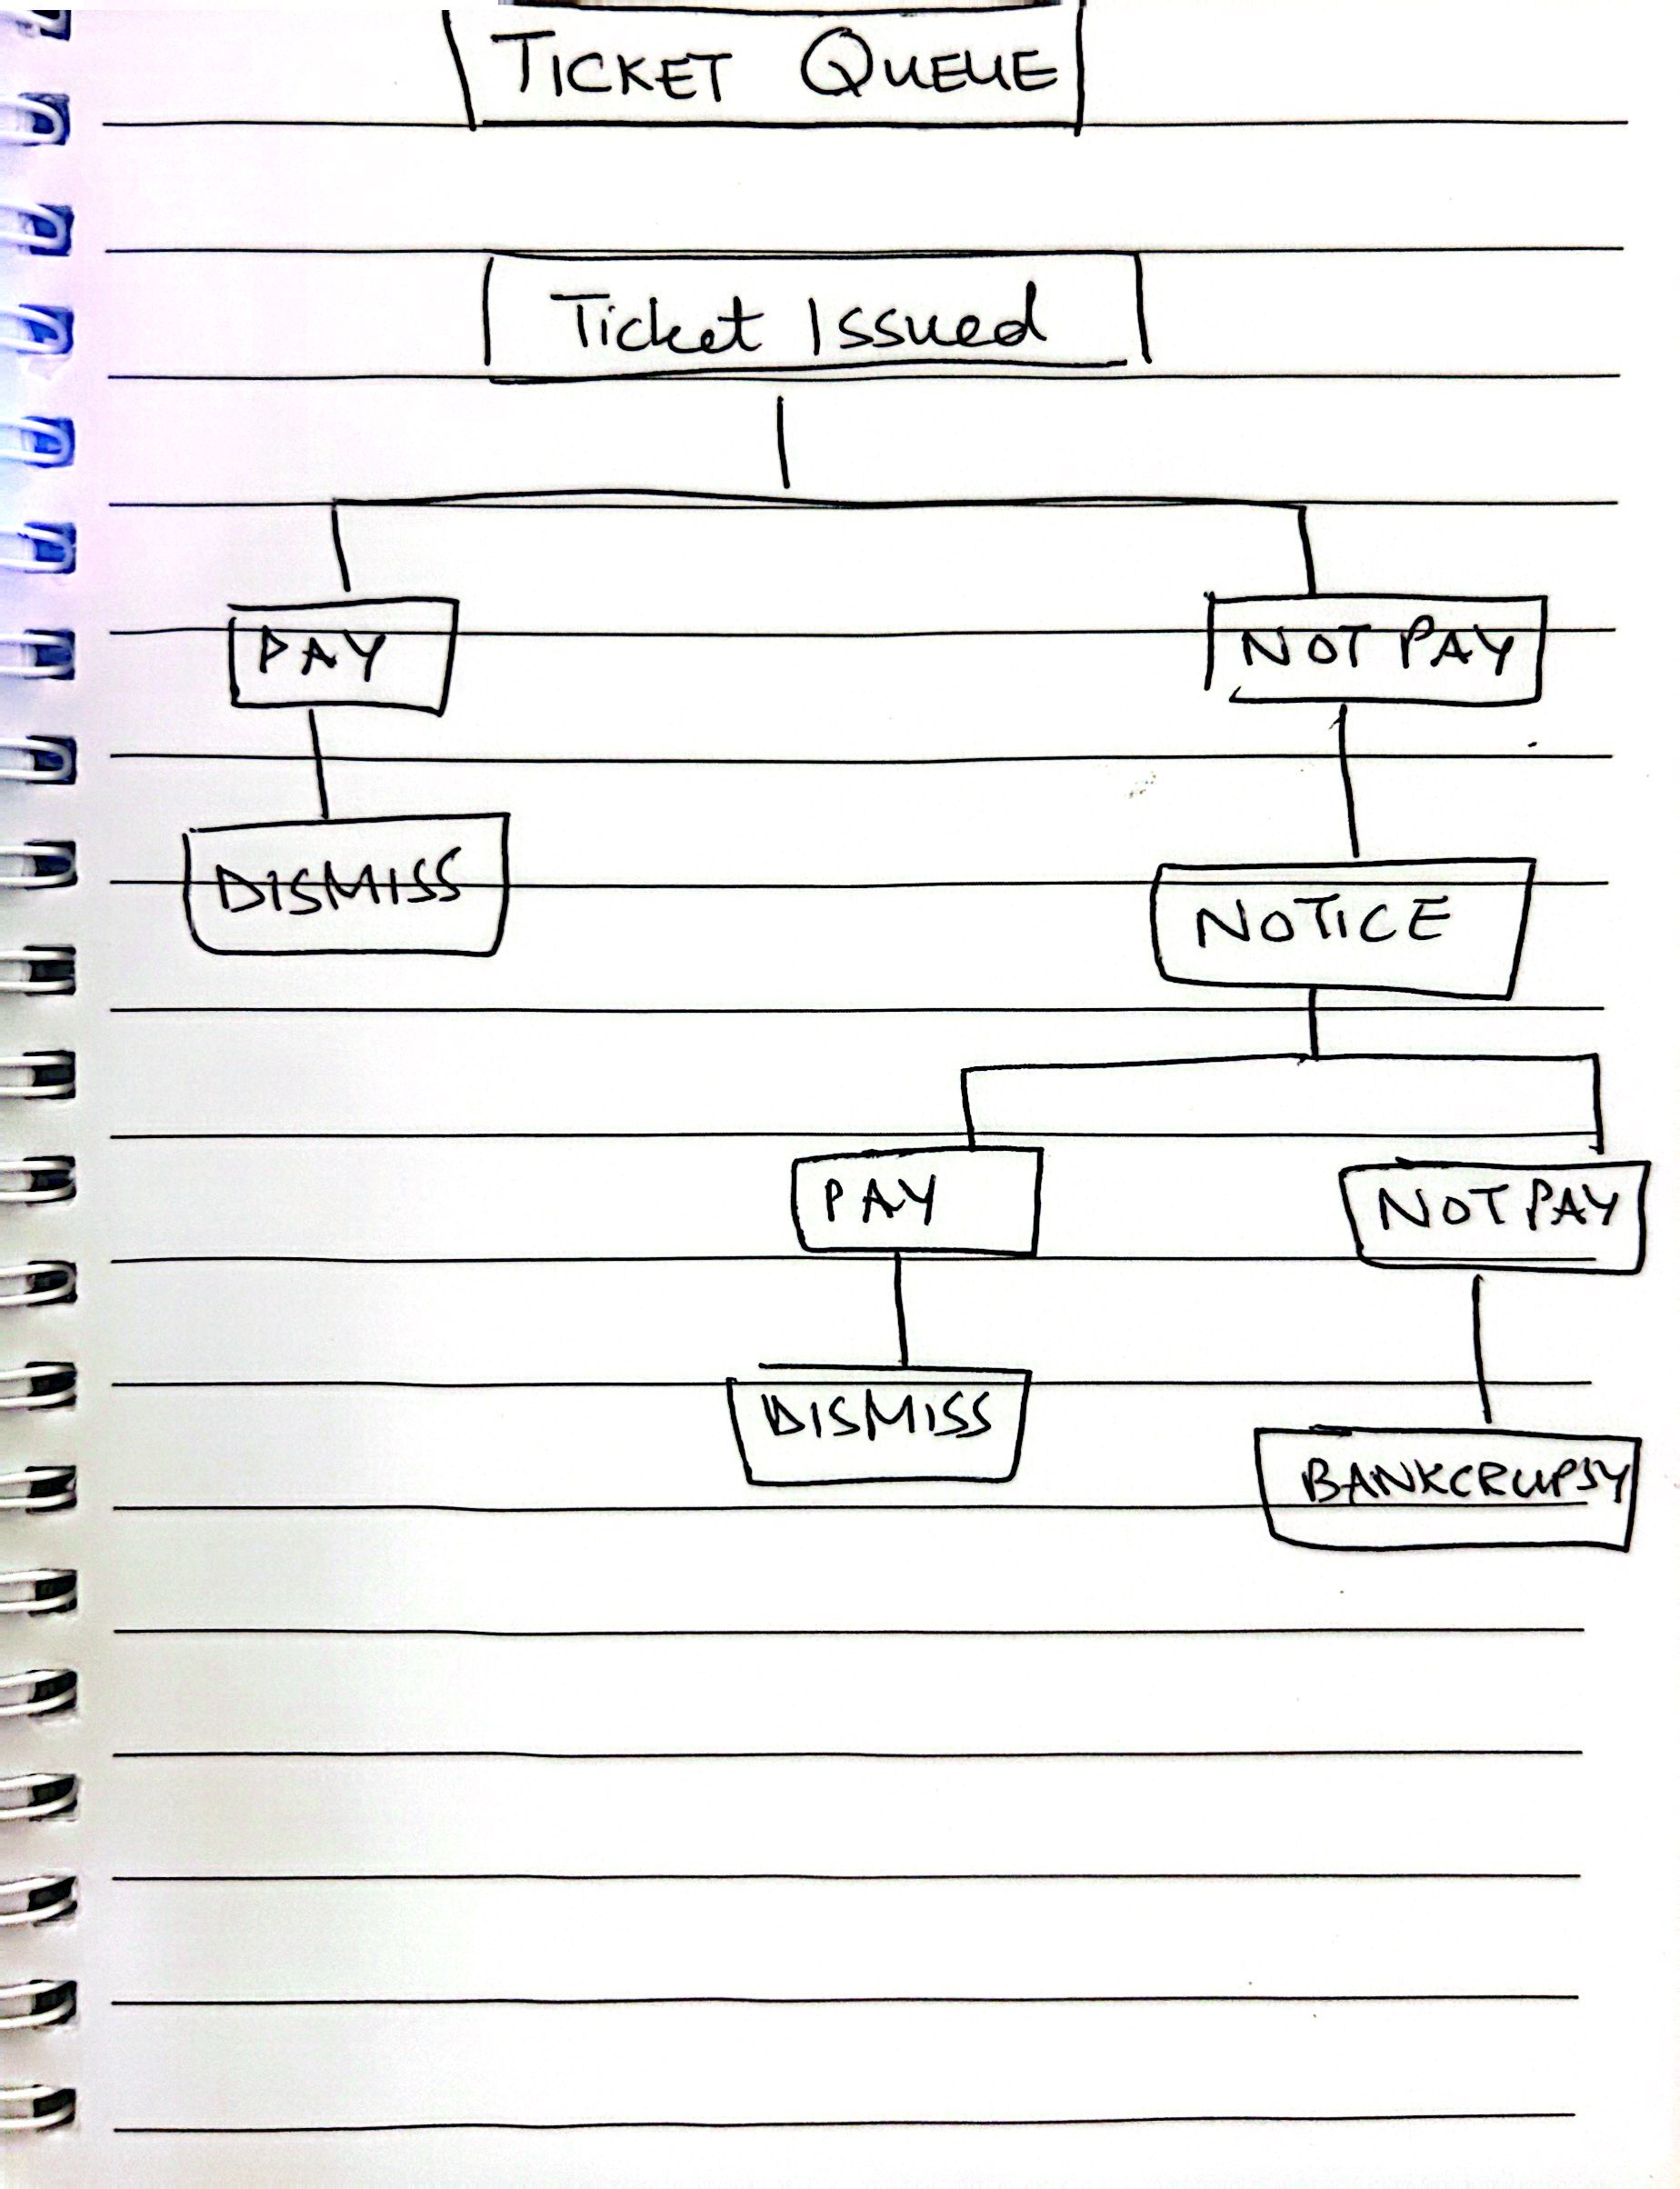 TICKET QUEUE
Ticket Issued
PAY
NOT PAY
DISMISS
NOTICE
PAY
NOT PAY
DISMISS
BANKCRUPSY